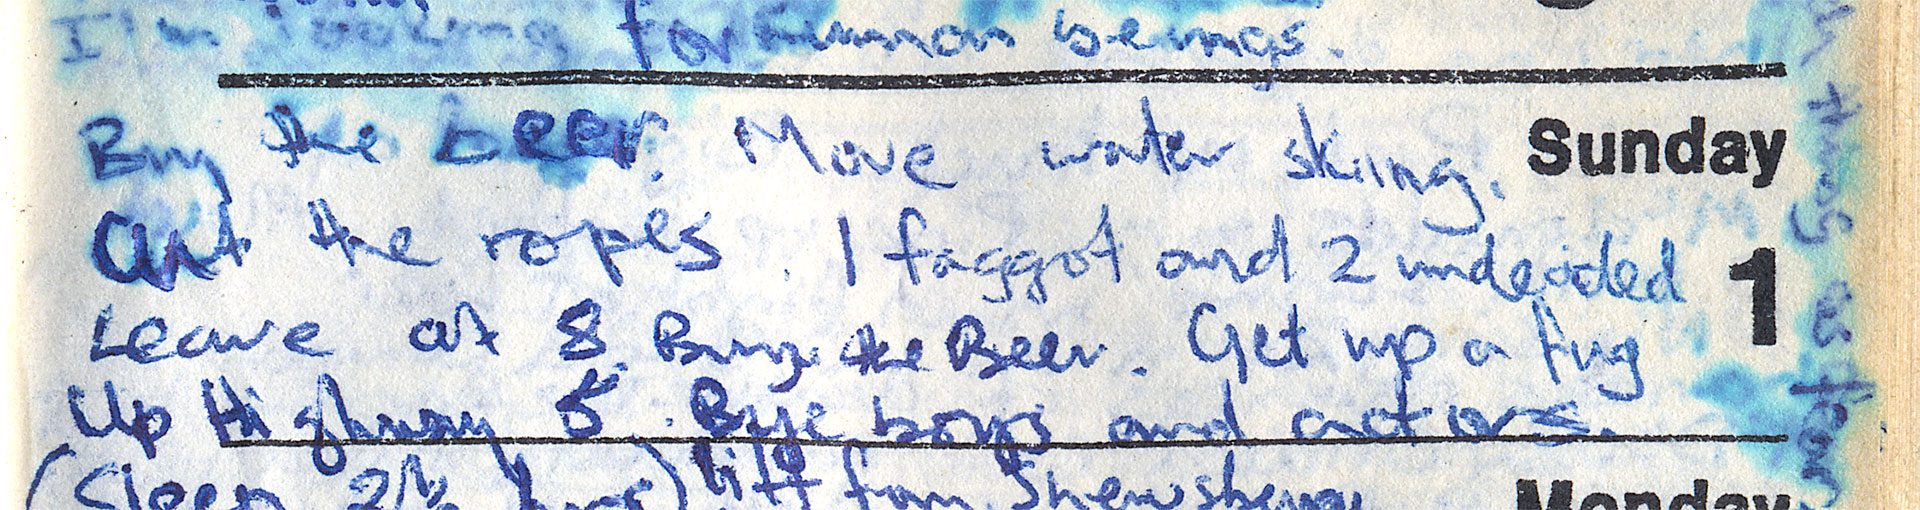 I'm looking for human beings.
Buy the beer. Move water skiing. Sunday
Cut the ropes. 1 faggot and 2 undecided 1
Leave at 8. Buy the Beer. Get up a fug
Up Highway 5. Bye boys and actors.
(Sleep 2½ hrs) lift from Shrewsbury
Monday